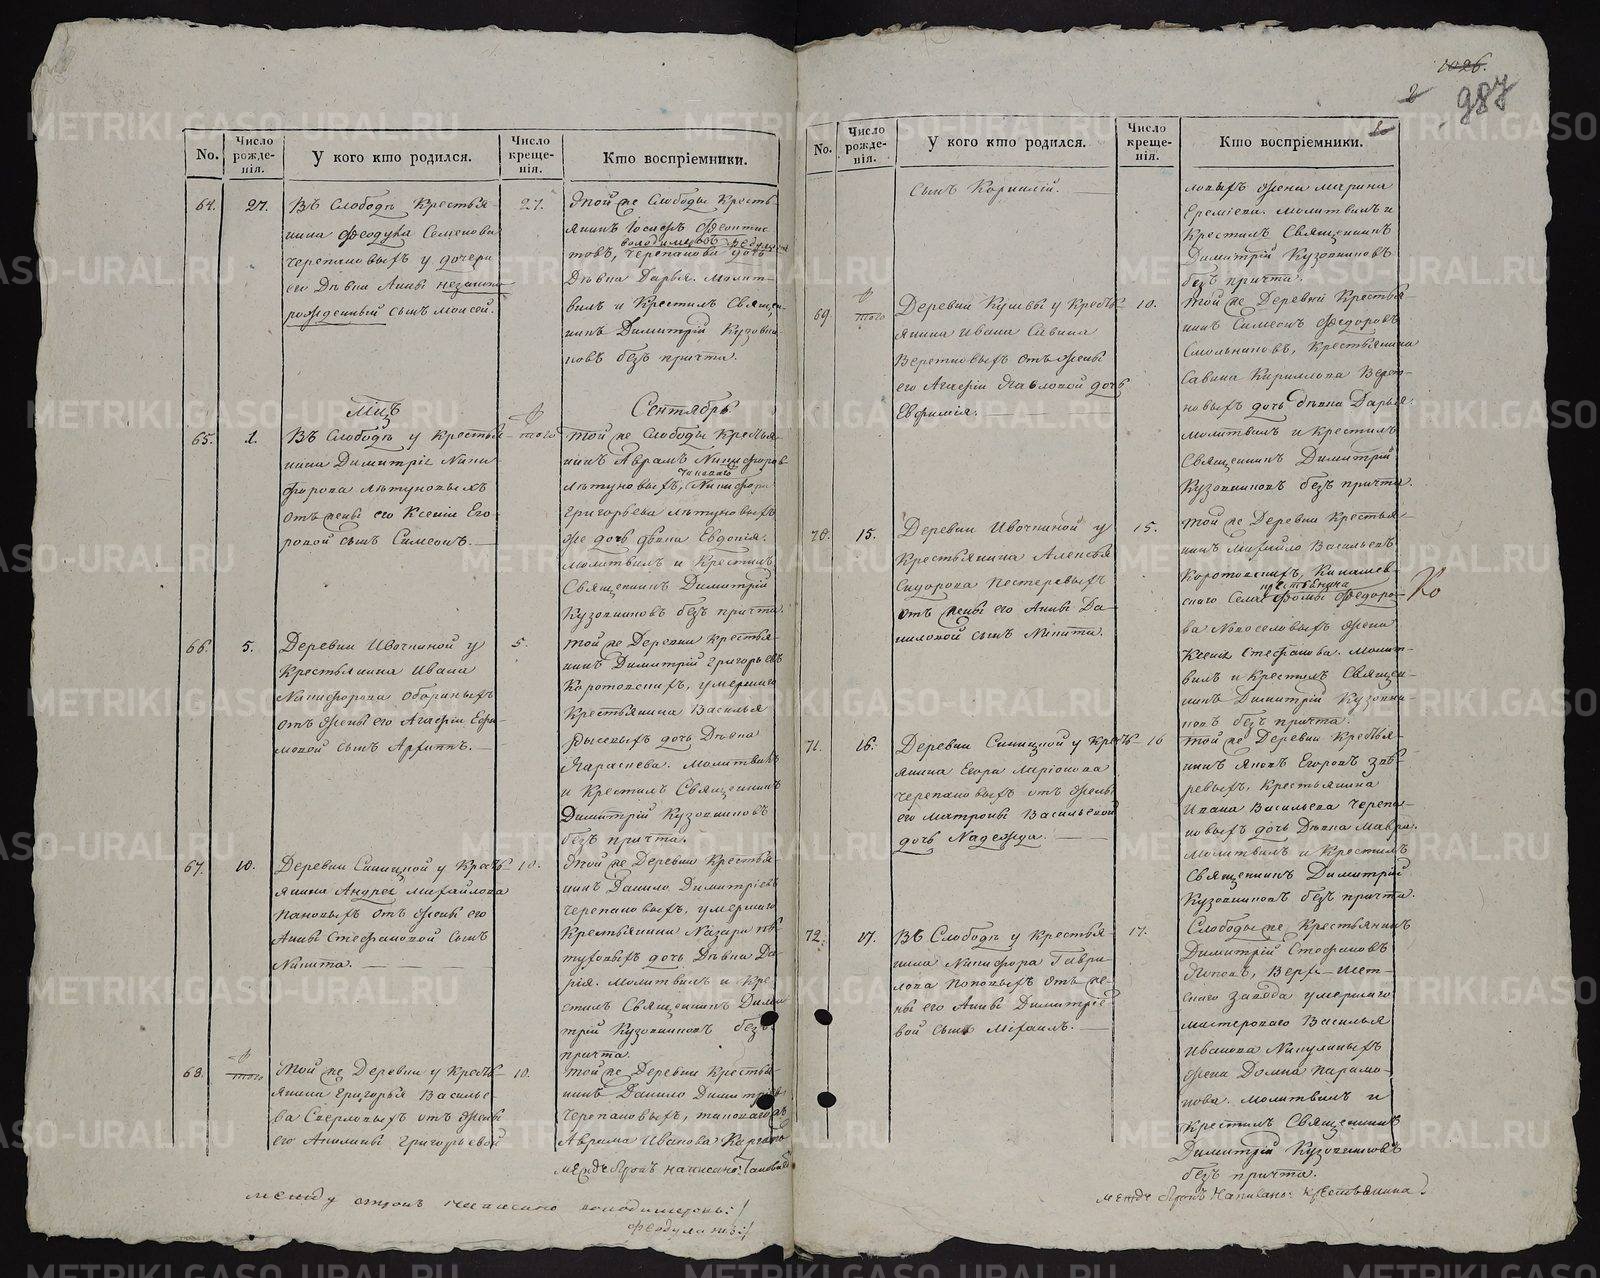 1026.
2
987
No.
Число рожде-нія.
У кого кто родился.
Число креще-нія.
Кто воспріемники.
64.
27.
Въ Слободѣ Крестья-
нина Феодула Семенова
Черепановыхъ у дочери
его Дѣвки Анны незаконно
рожденный сынъ Моисей.
27.
Той же Слободы Кресть-
янинъ Іосифъ Феоктис
володимеровъ Федулова
товъ, Черепанова дочь
Дѣвка Дарья. Молит-
вилъ и Крестилъ Священ-
никъ Димитрій Кузовни
ковъ безъ причта.
Мцъ
Сентябрь
65.
1.
Въ Слободѣ у Крестья-
нина Димитрія Ники
форова Летуновыхъ
отъ жены его Ксеніи Его-
ровой сынъ Симеонъ.
того
Той же Слободы Крестья-
нинъ Аврамъ Никифоровъ
таковаго
Летуновыхъ, Никифора
Григорьева Летуновыхъ
же дочь Дѣвка Евдокія.
Молитвилъ и Крестилъ
Священникъ Димитрій
Кузовниковъ безъ причта.
66.
5.
Деревни Ивочкиной у
Крестьянина Ивана
Никифорова Обориныхъ
отъ жены его Агафіи Ефи-
мовой сынъ Архиппъ.
5.
Той же Деревни Крестья-
нинъ Димитрій Григорьевъ
Коротовскихъ, умершаго
Крестьянина Василья
Рысевыхъ дочь Дѣвка
Параскева. Молитвилъ
и Крестилъ Священникъ
Димитрій Кузовниковъ
безъ причта.
67.
10.
Деревни Синицкой у Кресть-
янина Андрея Михайлова
Пановыхъ отъ жены его
Анны Стефановой сынъ
Никита.
10.
Той же Деревни Крестья
нинъ Данило Димитріевъ
Черепановыхъ, умершаго
Крестьянина Назара Пе
туховыхъ дочь Дѣвка Да
рія. Молитвилъ и Кре-
стилъ Священникъ Дими
трій Кузовниковъ безъ
причта.
68.
того
Той же Деревни у Кресть
янина Григорья Василье
ва Сверловыхъ отъ жены
его Акилины Григорьевой
10.
Той же Деревни Крестья
нинъ Данило Димитріевъ
Черепановыхъ, таковаго
Аврама Иванова
между строкъ написано: таковаго
между строкъ написано володимеровъ:/
Федулова:/
No.
Число рожде-нія.
У кого кто родился.
Число креще-нія.
Кто воспріемники.
сынъ Корнилій.
ловыхъ жена Марина
Еремѣева. Молитвилъ и
Крестилъ Священникъ
Димитрій Кузовниковъ
безъ причта.
69
того
Деревни Кушвы у Кресть-
янина Ивана Савина
Веретновыхъ отъ жены
его Агафіи Павловой дочь
Евфимія.
10.
Той же Деревни Крестья-
нинъ Симеонъ Федоровъ
Смольниковъ, Крестьянина
Савина Кирилова Верет-
новыхъ дочь Дѣвка Дарья.
Молитвилъ и Крестилъ
Священникъ Димитрій
Кузовниковъ безъ причта.
70.
15.
Деревни Ивочкиной у
Крестьянина Алексѣя
Сидорова Пестеревыхъ
отъ жены его Анны Да-
ниловой сынъ Никита.
15.
Той же Деревни Крестья-
нинъ Михайло Васильевъ
Коротовскихъ, Киналев
крестьянина
скаго Села Фомы Федоро-
ва Новоселовыхъ жена
Ксенія Стефанова. Молит-
вилъ и Крестилъ Священ-
никъ Димитрій Кузовни-
ковъ безъ причта.
71.
16.
Деревни Синицкой у Кресть-
янина Егора Маріонова
Черепановыхъ отъ жены
его Матроны Васильевой
дочь Надежда.
16
Той же Деревни Крестья-
нинъ Яковъ Егоровъ Звѣ-
ревыхъ, Крестьянина
Ивана Васильева Черепа-
новыхъ дочь Дѣвка Мавра.
Молитвилъ и Крестилъ
Священникъ Димитрій
Кузовниковъ безъ причта.
72.
17.
Въ Слободѣ у Крестья-
нина Никифора Гаври-
лова Поповыхъ отъ же-
ны его Анны Димитріе-
вой сынъ Михаилъ.
17.
Слободы же Крестьянинъ
Димитрій Стефановъ
Поповъ, Верх-Исет-
скаго завода умершаго
мастероваго Василья
Иванова Никулиныхъ
жена Домна Парамо-
нова. Молитвилъ и
Крестилъ Священникъ
Димитрій Кузовниковъ
безъ причта.
между строкъ написано: крестьянина.